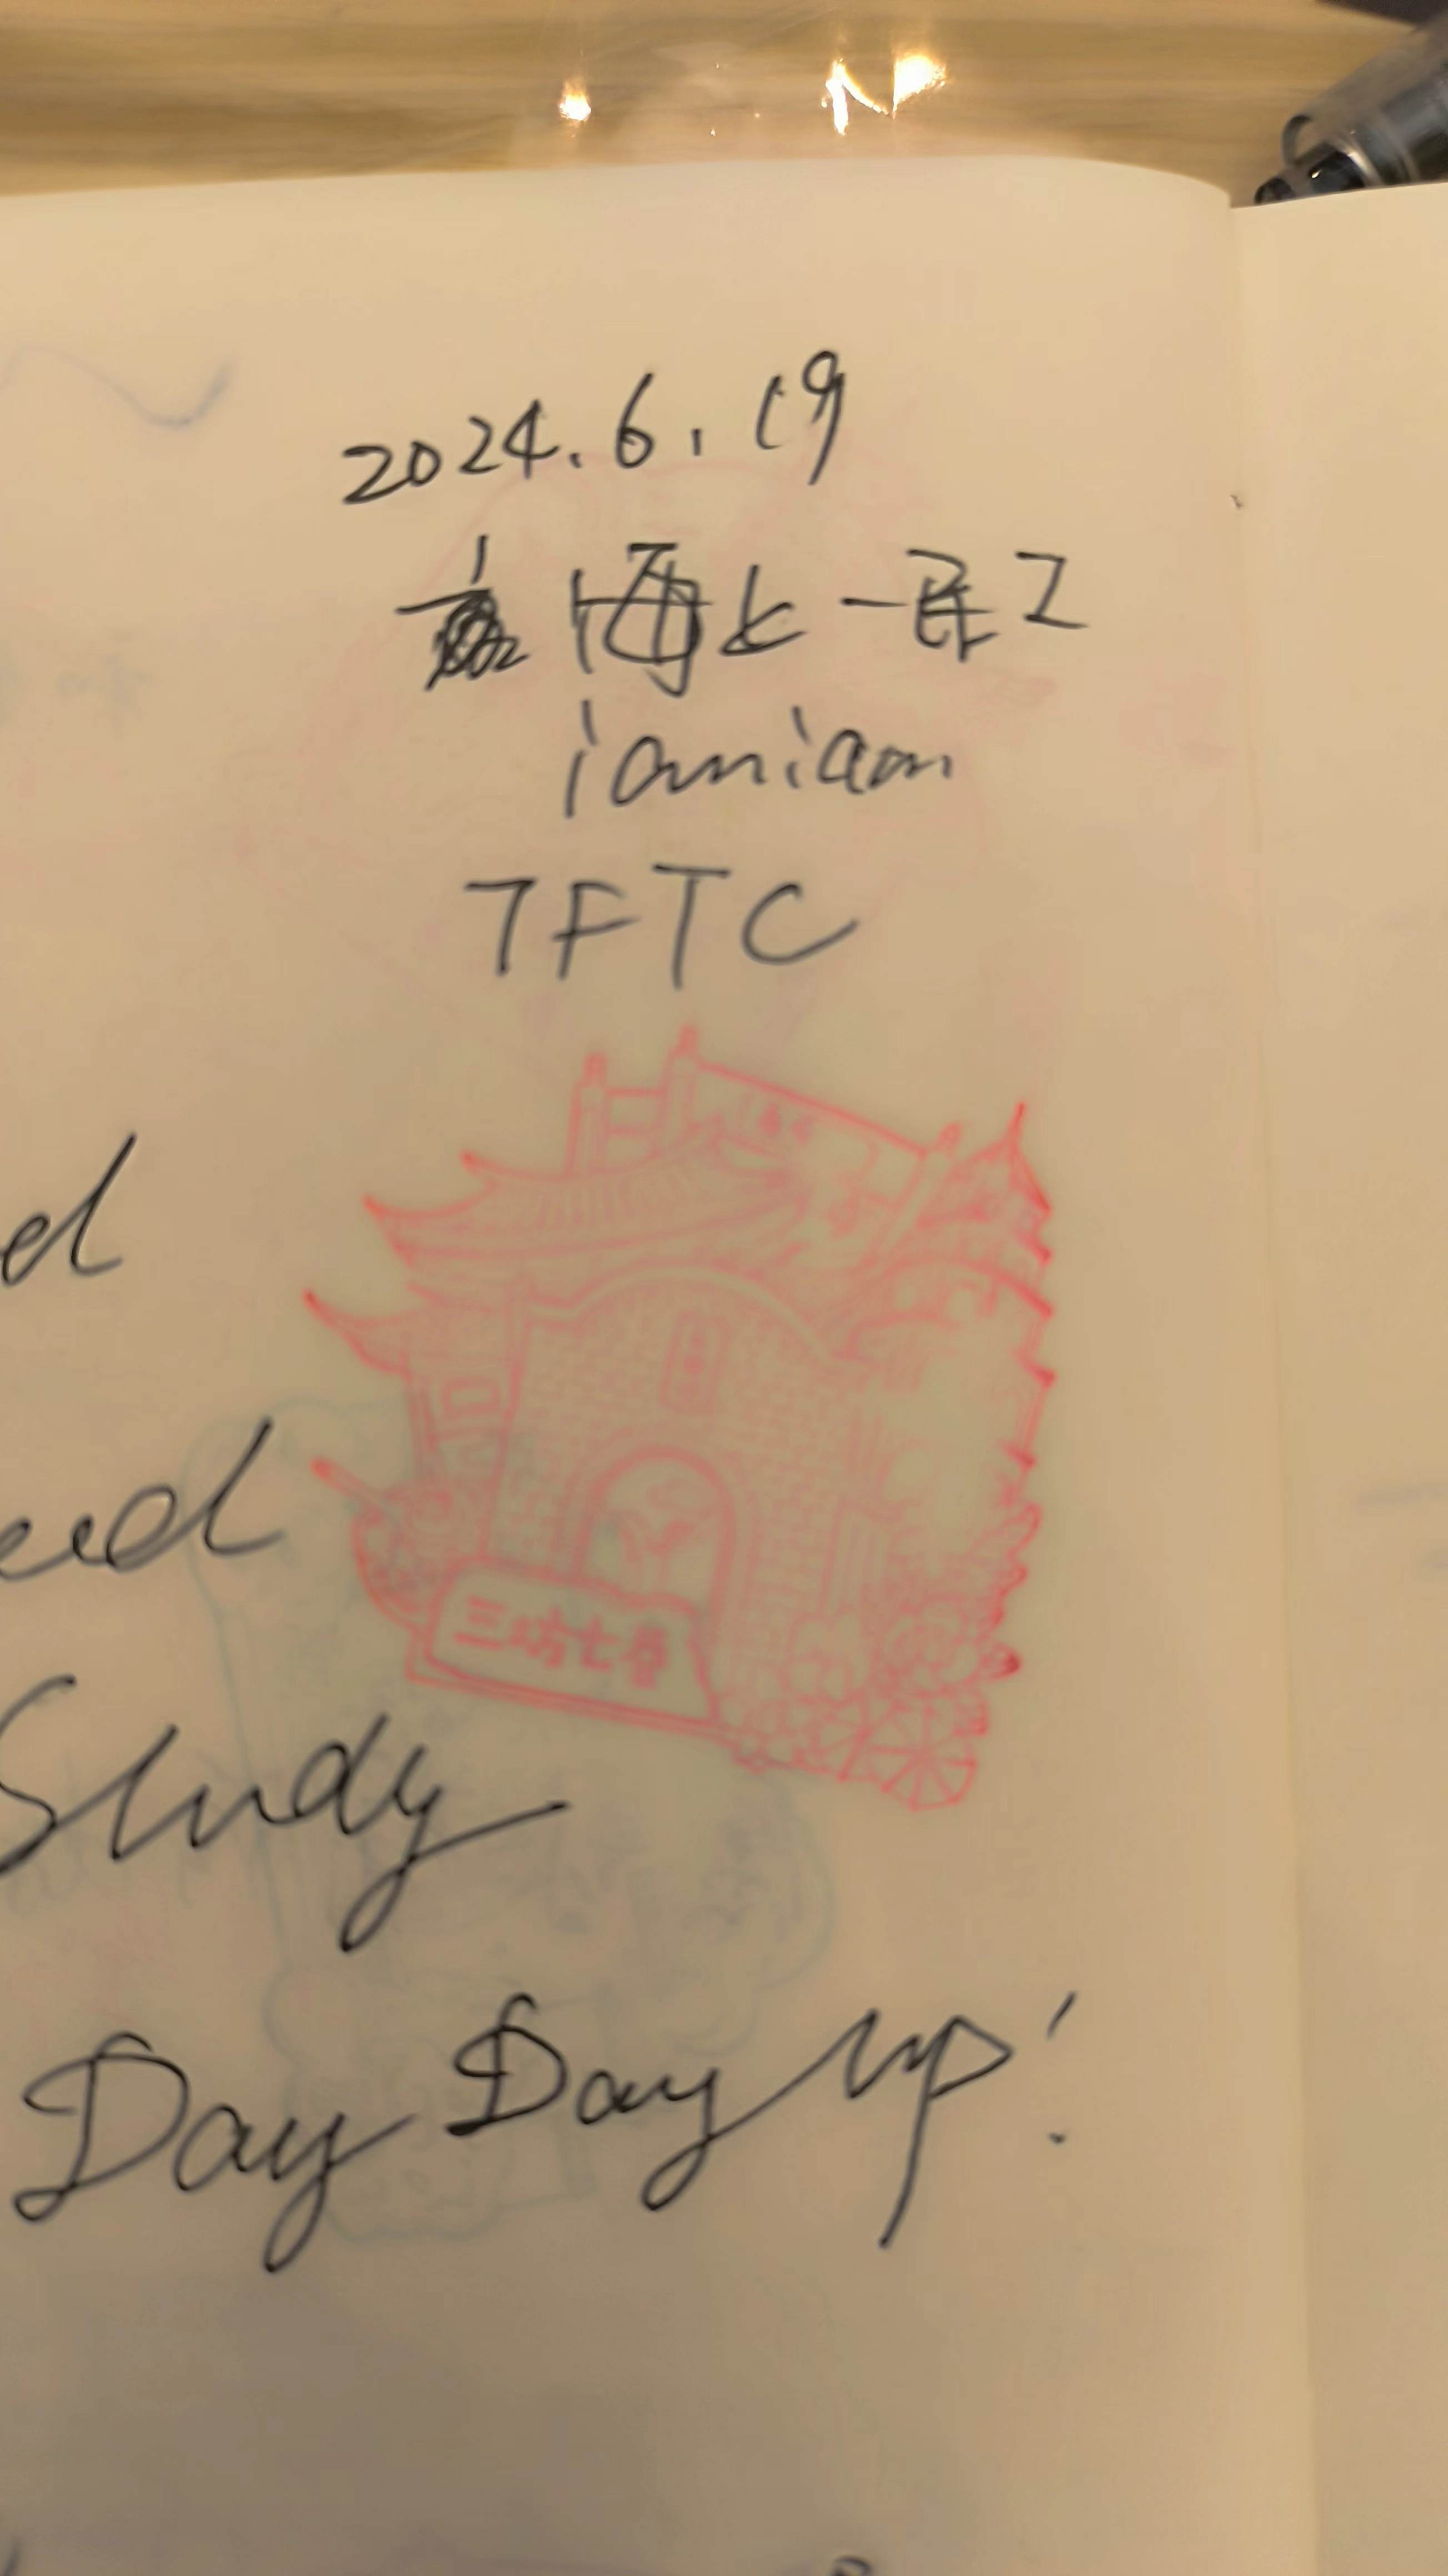 2024.6.19
海上一民工
iamiam
TFTC
三坊七巷
Study
Day Day up!